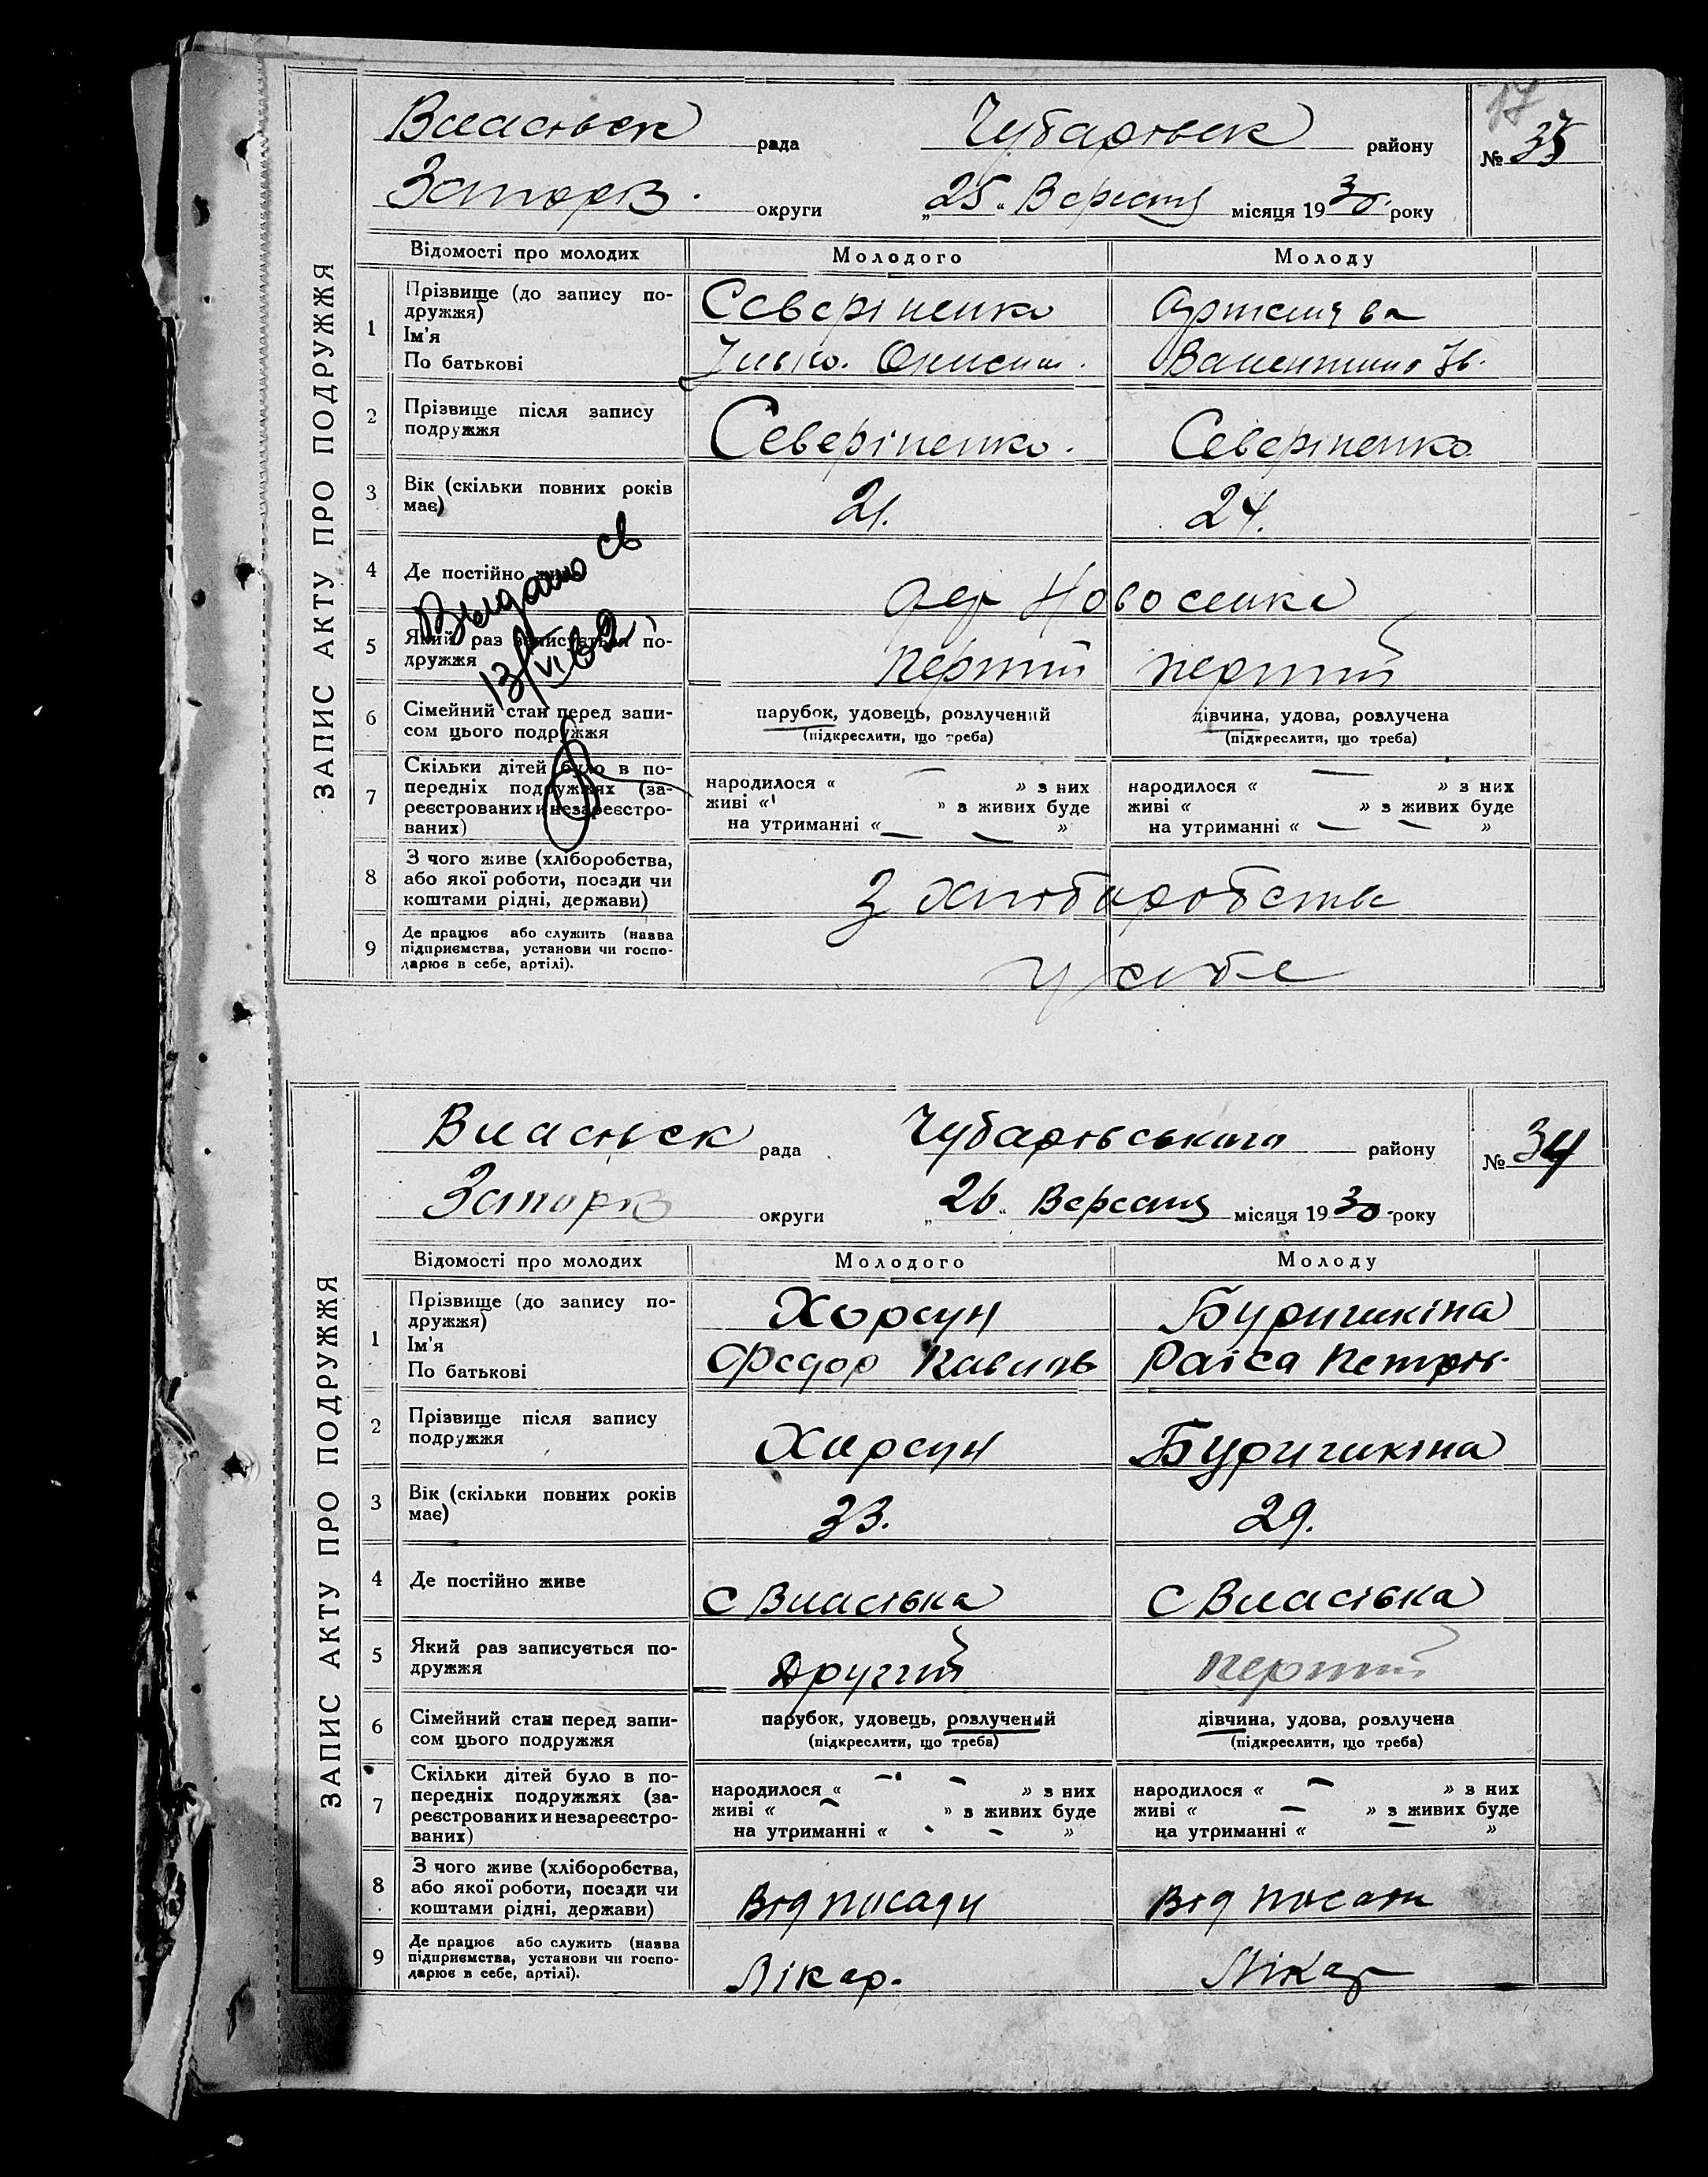 17
Власівск рада Чубарівск району № 33
Запоріз. округи „25“ Вересня місяця 1930 року
ЗАПИС АКТУ ПРО ПОДРУЖЖЯ
Відомості про молодих Молодого Молоду
1 Прізвище (до запису по-
дружжя) Сєвєріненко
Ім'я
По батькові Ілько. Онисим. Валентина Ів.
2 Прізвище після запису
подружжя Сєвєріненко. Сєвєріненко
3 Вік (скільки повних років
має) 21. 24.
4 Де постійно живе дер Новоселка
5 Який раз записується по-
дружжя перший перший
Выдано св
13/VI 62
6 Сімейний стан перед запи-
сом цього подружжя парубок, удовець, розлучений дівчина, удова, розлучена
(підкреслити, що треба) (підкреслити, що треба)
7 Скільки дітей було в по-
передніх подружжях (за-
реєстрованих и незареєстро-
ваних)
народилося « — » з них народилося « — » з них
живі « » з живих буде живі « » з живих буде
на утриманні « — — » на утриманні « — — »
8 З чого живе (хліборобства,
або якої роботи, посади чи
коштами рідні, держави) З хліборобства
9 Де працює або служить (назва
підприємства, установи чи госпо-
дарює в себе, артілі). у себе
Власівск рада Чубарівського району № 34
Запоріз округи „26“ Вересня місяця 1930 року
ЗАПИС АКТУ ПРО ПОДРУЖЖЯ
Відомості про молодих Молодого Молоду
1 Прізвище (до запису по-
дружжя) Хорсун Буришкіна
Ім'я
По батькові Федор Павлов Раіса Петров.
2 Прізвище після запису
подружжя Хорсун Буришкіна
3 Вік (скільки повних років
має) 33. 29.
4 Де постійно живе С Власівка С Власівка
5 Який раз записується по-
дружжя Другий перший
6 Сімейний стан перед запи-
сом цього подружжя парубок, удовець, розлучений дівчина, удова, розлучена
(підкреслити, що треба) (підкреслити, що треба)
7 Скільки дітей було в по-
передніх подружжях (за-
реєстрованих и незареєстро-
ваних)
народилося « — — » з них народилося « — » з них
живі « — » з живих буде живі « — » з живих буде
на утриманні « - - » на утриманні « — »
8 З чого живе (хліборобства,
або якої роботи, посади чи
коштами рідні, держави) Від посади Від посади
9 Де працює або служить (назва
підприємства, установи чи госпо-
дарює в себе, артілі). Лікар. Лікар